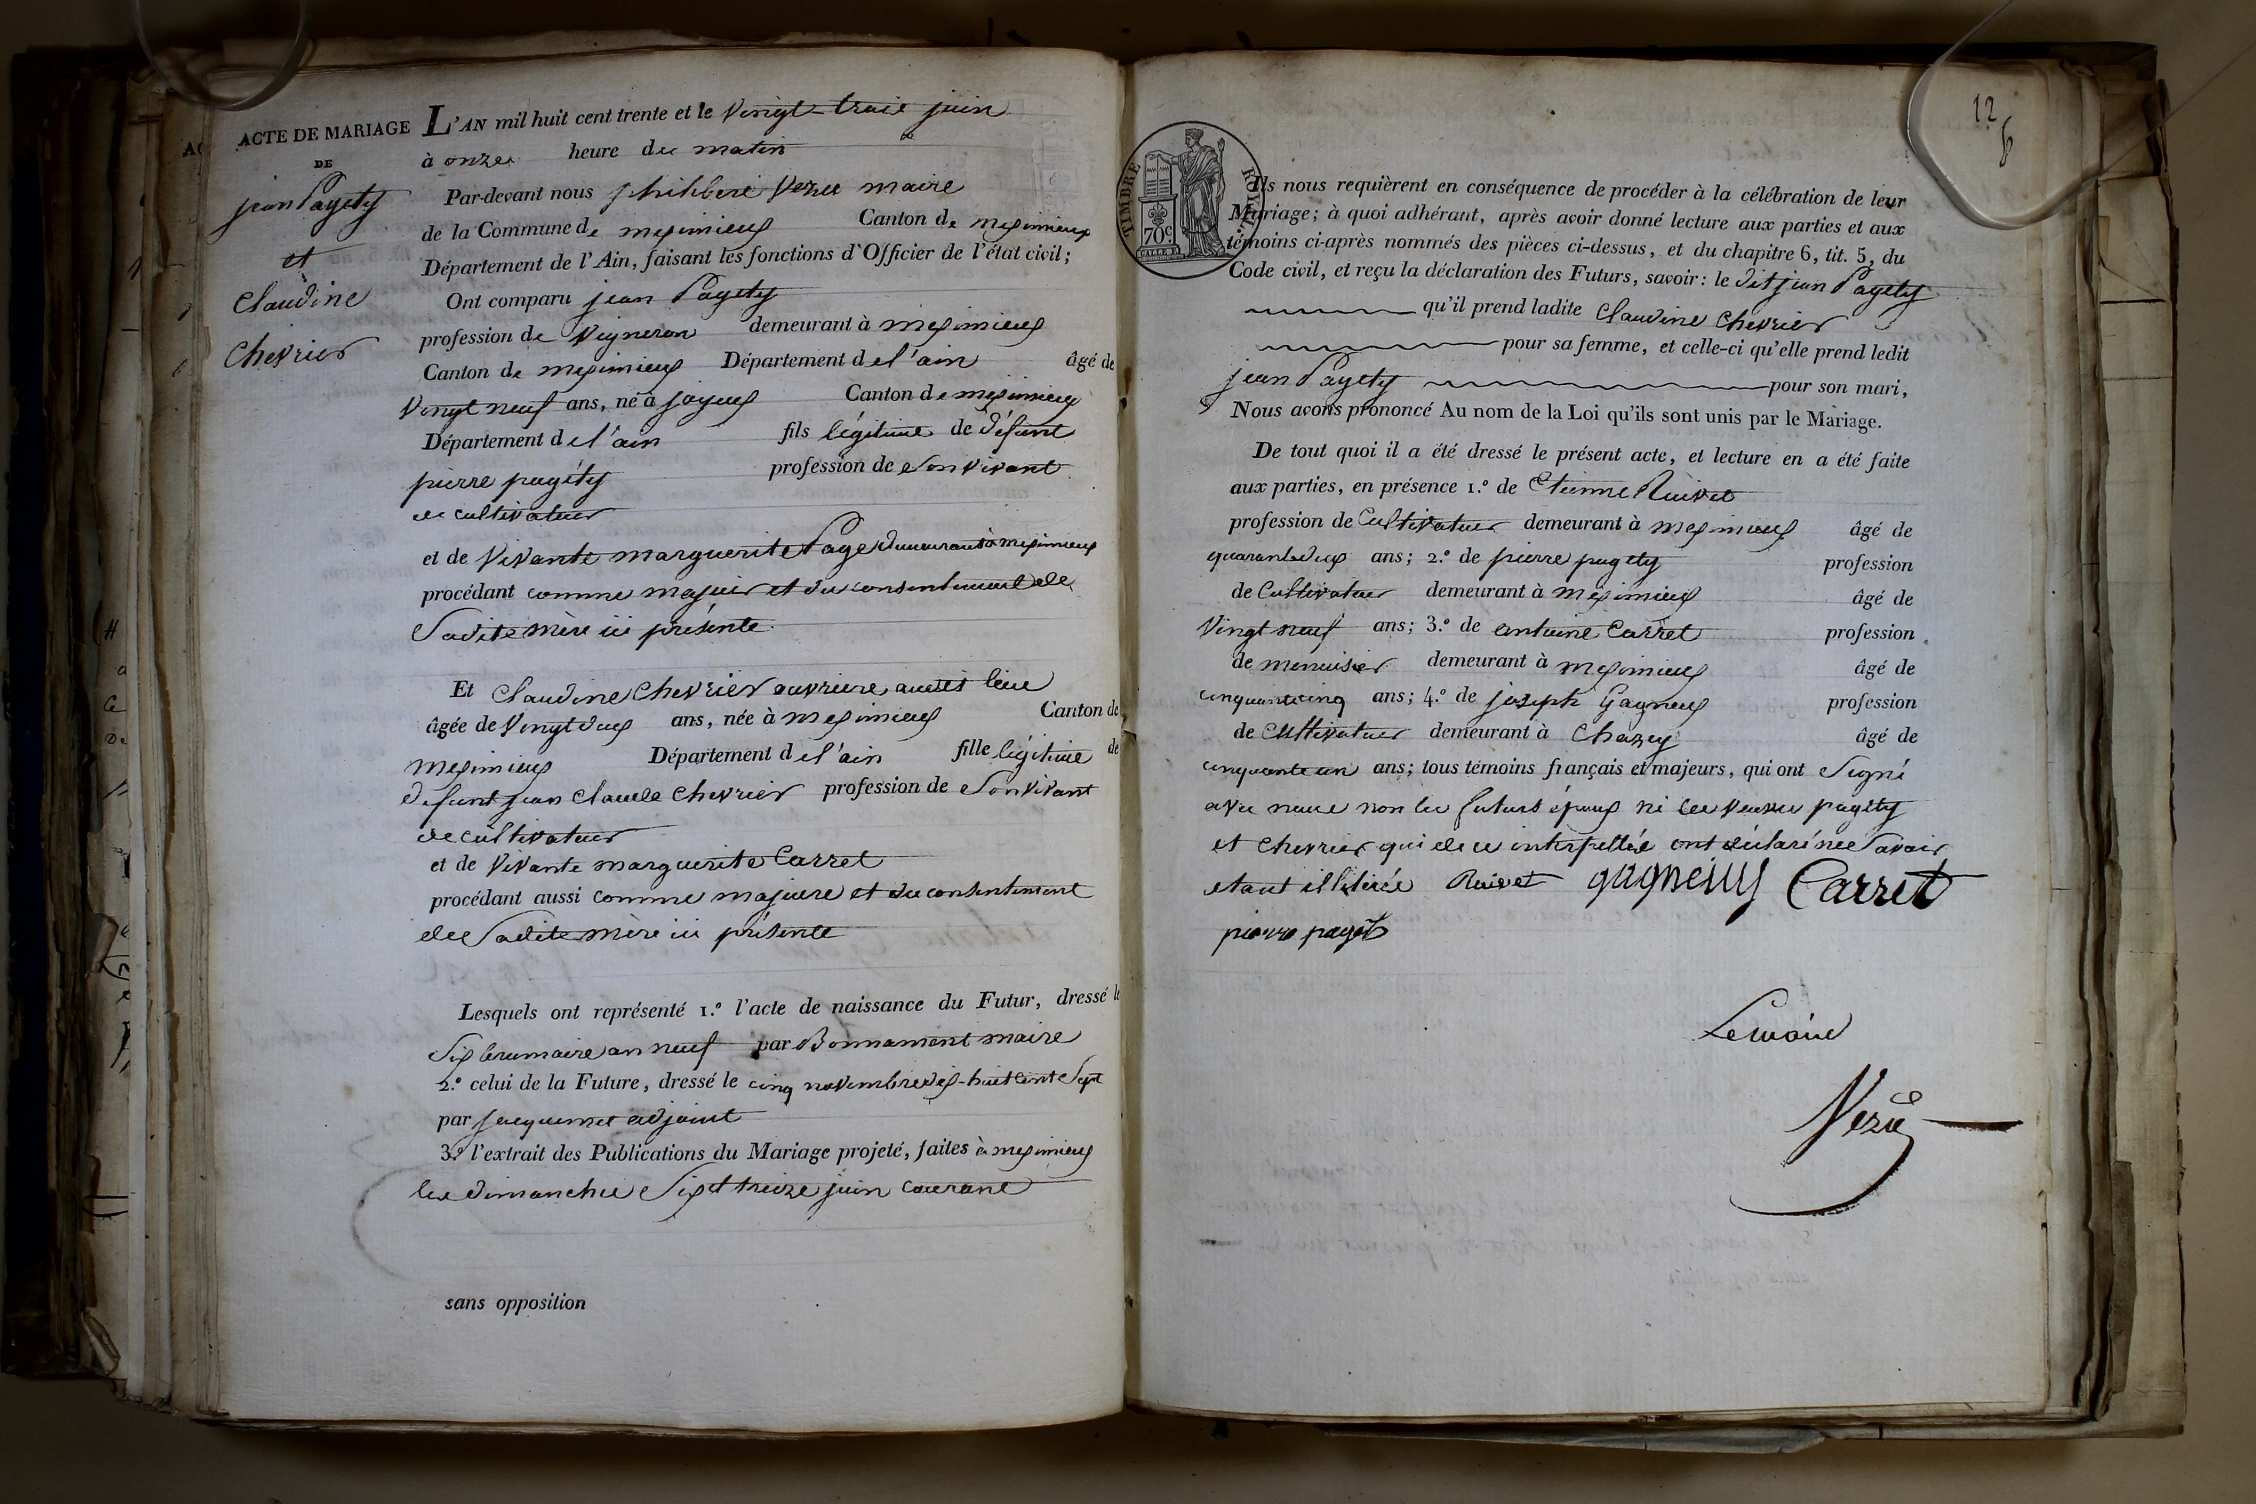 ACTE DE MARIAGE
DE
jean Pagety
et
Claudine
Chevrier
L'AN mil huit cent trente et le vingt-trois juin
à onze heure du matin
Par-devant nous philibert Vezu maire
de la Commune de meximieux Canton de meximieux
Département de l'Ain, faisant les fonctions d'Officier de l'état civil;
Ont comparu jean Pagety
profession de vigneron demeurant à meximieux
Canton de meximieux Département de l'ain âgé de
vingt neuf ans, né à joyeux Canton de meximieux
Département de l'ain fils légitime de défunt
pierre pagéty profession de son vivant
de cultivateur
et de vivante marguerite Page demeurant à meximieux
procédant comme majeur et du consentement de
Sadite mère ici présente
Et Claudine Chevrier ouvriere audit lieu
âgée de vingt deux ans, née à meximieux Canton de
meximieux Département de l'ain fille légitime de
défunt jean Claude Chevrier profession de son vivant
de cultivateur
et de vivante marguerite Carret
procédant aussi comme majeure et du consentement
de Sadite mère ici présente
Lesquels ont représenté 1.º l'acte de naissance du Futur, dressé le
Six brumaire an neuf par Bonnamant maire
2.º celui de la Future, dressé le cinq novembre dix-huit cent Sept
par jacquemet adjoint
3.º l'extrait des Publications du Mariage projeté, faites à meximieux
les dimanches Six et treize juin courant
sans opposition
12
TIMBRE ROYAL
70c
Ils nous requièrent en conséquence de procéder à la célébration de leur
Mariage; à quoi adhérant, après avoir donné lecture aux parties et aux
témoins ci-après nommés des pièces ci-dessus, et du chapitre 6, tit. 5, du
Code civil, et reçu la déclaration des Futurs, savoir: le dit jean Pagety
qu'il prend ladite Claudine Chevrier
pour sa femme, et celle-ci qu'elle prend ledit
jean Pagety pour son mari,
Nous avons prononcé Au nom de la Loi qu'ils sont unis par le Mariage.
De tout quoi il a été dressé le présent acte, et lecture en a été faite
aux parties, en présence 1.º de Etienne Ruivet
profession de Cultivateur demeurant à meximieux âgé de
quarante deux ans; 2.º de pierre pagety profession
de Cultivateur demeurant à meximieux âgé de
vingt neuf ans; 3.º de antoine Carret profession
de menuisier demeurant à meximieux âgé de
cinquante cinq ans; 4.º de joseph Gagneux profession
de Cultivateur demeurant à Chazey âgé de
cinquante un ans; tous témoins français et majeurs, qui ont Signé
avec nous non les futurs époux ni les veuves pagéty
et Chevrier qui de ce interpellés ont déclaré ne Savoir
etant illitérés Ruivet gagneux Carret
pierre pagéti
Le maire
Vezu